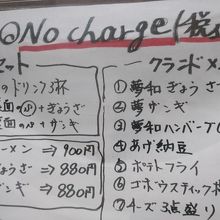 ◎No charge(税
セット
のドリンク3杯
裏面の 〃 +ぎょうざ
裏面の 〃 +ザンギ
ーメン ⇒ 900円
ょうざ ⇒ 880円
ンギ ⇒ 880円
グランドメ
① 夢和ぎょうざ
② 夢ザンギ
③ 夢和ハンバーグ(
④ あげ納豆
⑤ ポテトフライ
⑥ ゴボウスティック
⑦ チーズ3点盛り